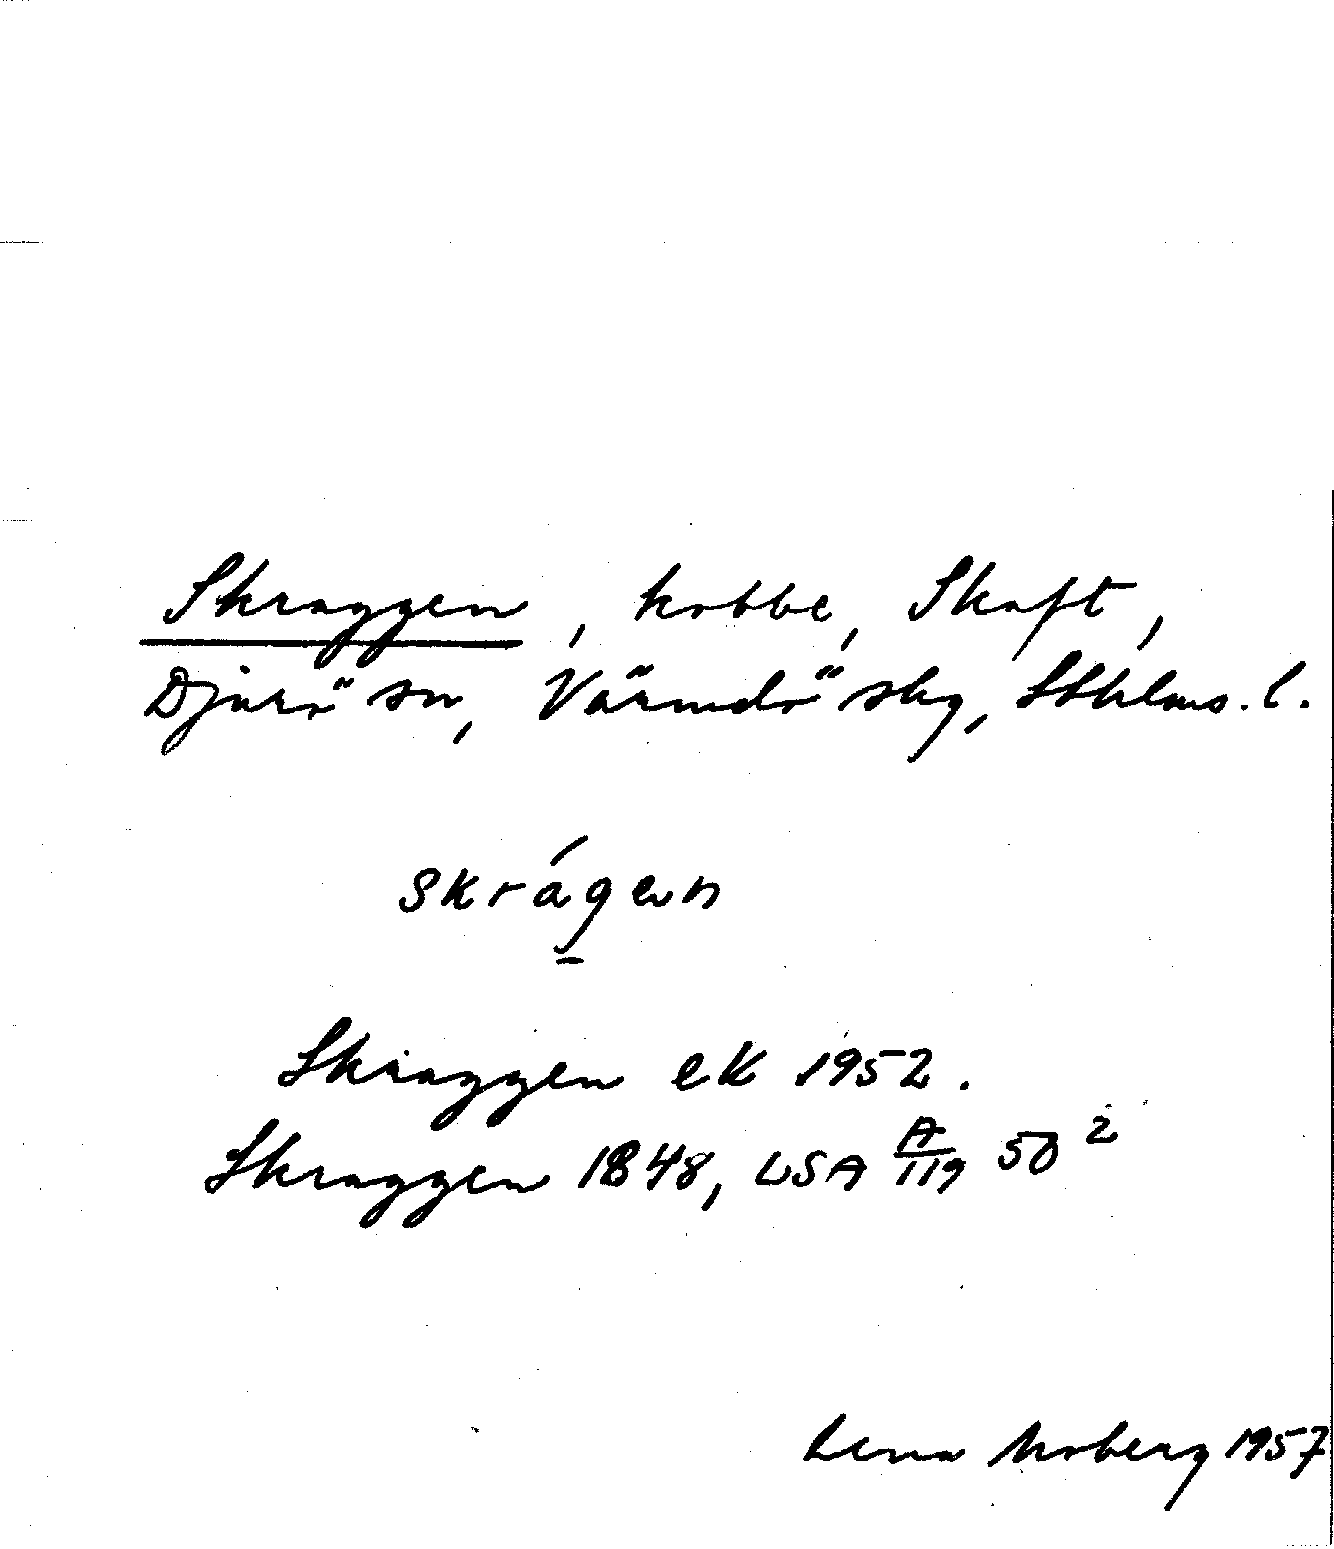 Skraggen, kobbe, Skaft,
Djurö sn, Värmdö skg, Sthlms. l.
skrágen
Skraggen ek 1952.
Skraggen 1848, LSA A/119 50²
Lena Moberg 1957